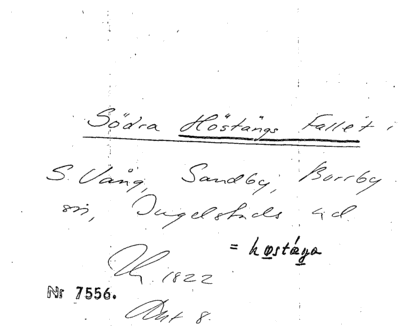 Södra Höstängs Fallet i
S. Vång, Sandby, Borrby
sn, Ingelstads hd
= høstáŋa
1822
Nr 7556.
Akt 8.